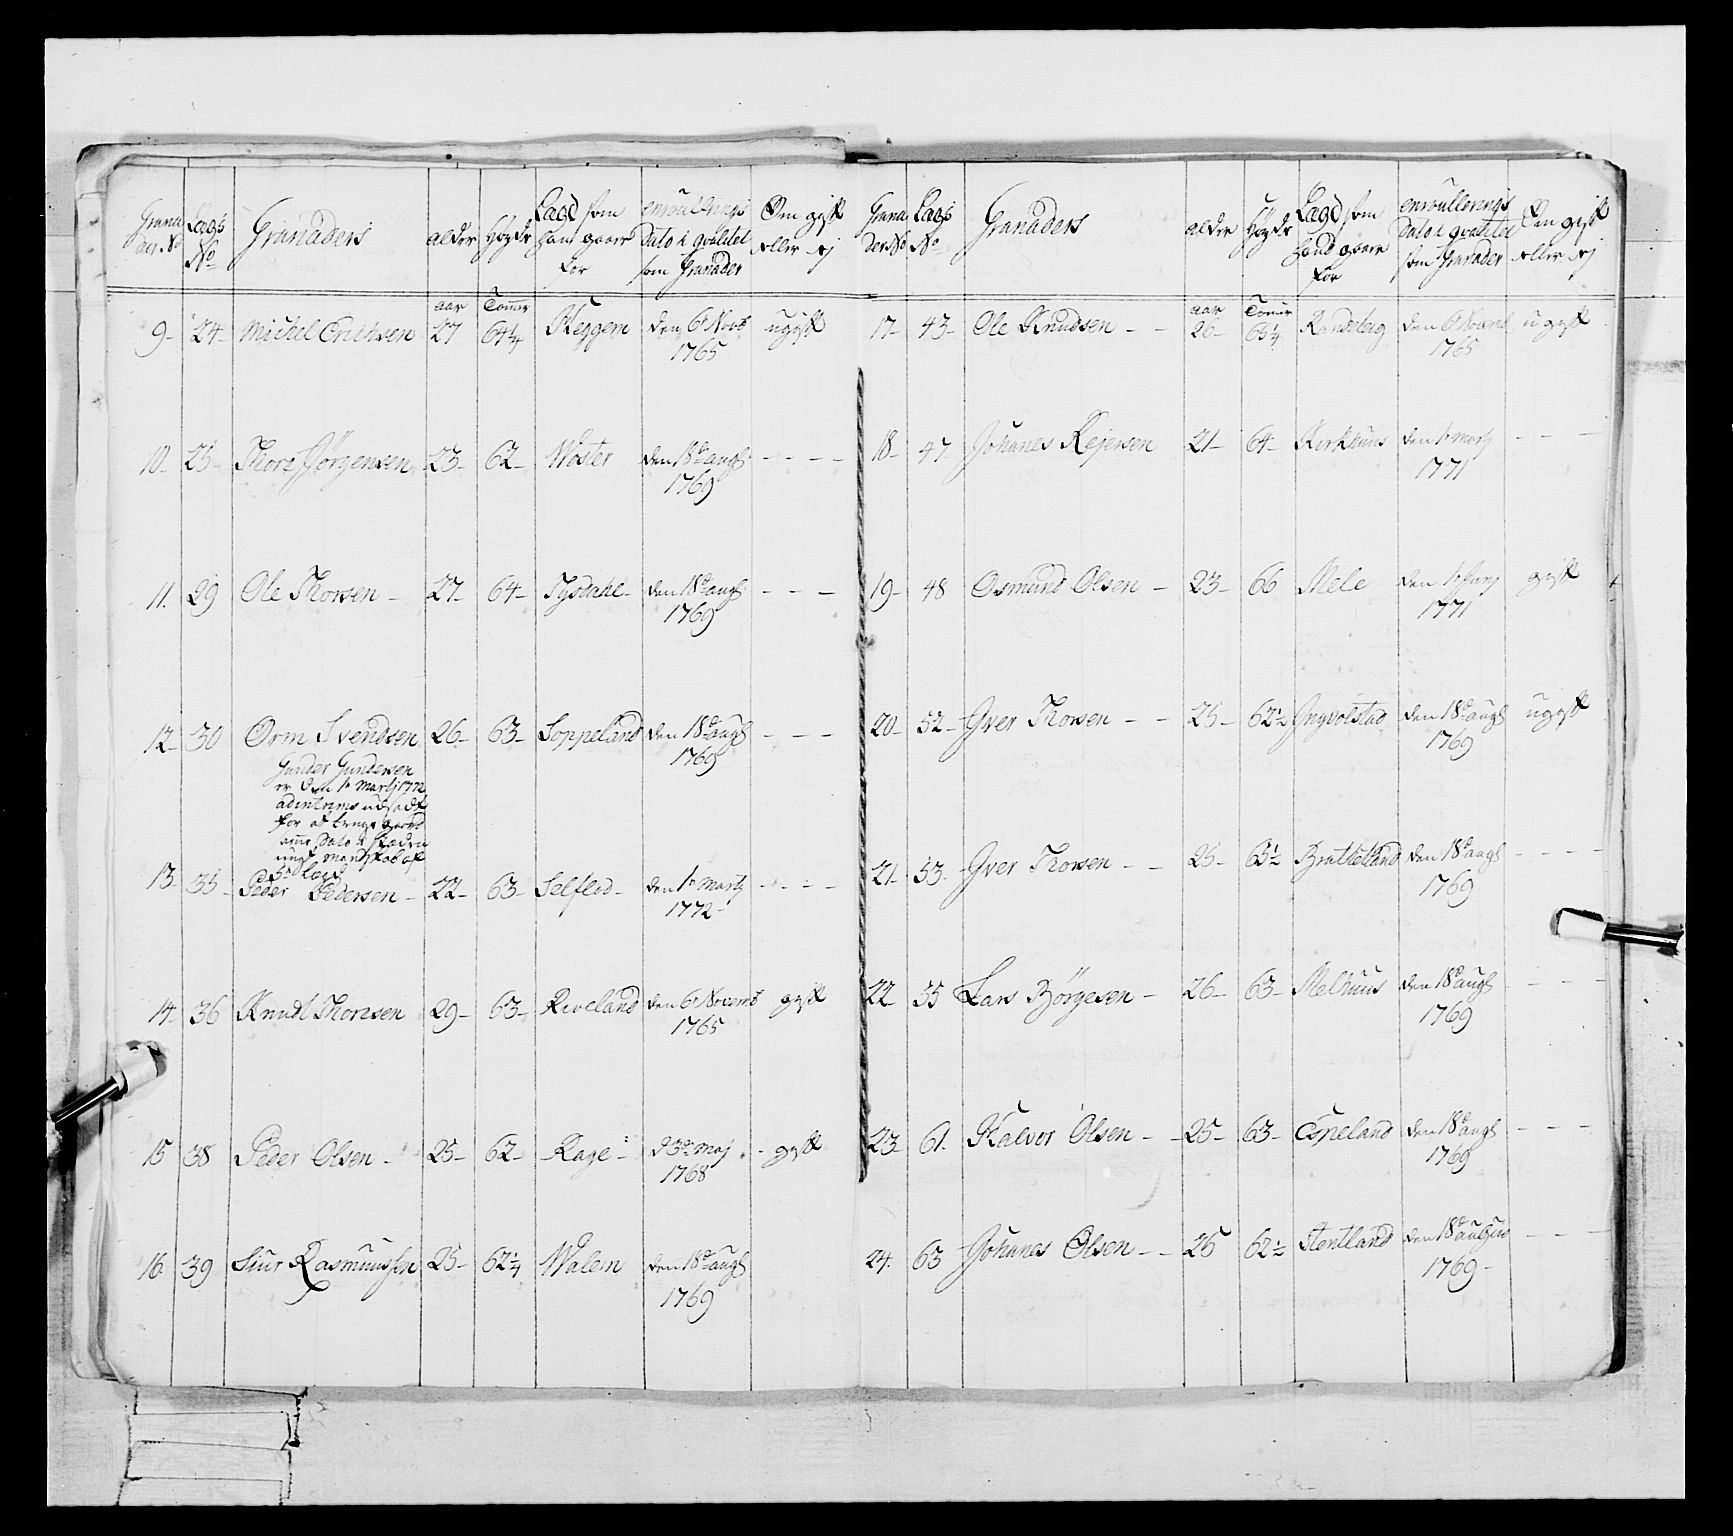 Grana der No
Lags No
Granaders
alder
Høyde
Lagd som
hand gaaer
for
enroullerings
Dato i qvalitet
som Granader
Om gift
eller ej
aar
Tomer
9- 24- Michel Erichsen 27 64¼ Heggem den 6t Novb ugift
1765
10- 25- Thore Jørgensen 23- 62- Woster den 18de augl. - - - -
1769
11. 29 Ole Thorsen - 27- 64- Tysdahl- den 18de augl. - - -
1769
12- 30 Orm Svendsen 26- 63- Soppeland den 18de augl - - -
1769
Gunder Gundersen
er den 1t Martij 1772
ad interims udsadt
for at bruge
13- 35- Peder Pedersen - 22- 63- Selflod- den 1t Martj - - - -
1772-
14- 36 Knud Thorsen 29- 63- Riveland den 6t Novemb gift
1765
15 38 Peder Olsen - 25- 62- Rage- d 3de Maj - gift
1768
16. 39 Siur Rasmuussen 25- 62¼ Walem den 18de augl
1769
Grana der No
Lags No
Granaders
alder
Høyde
Lagd som
hand gaaer
for
enroullerings
Dato i qvalitet
som Granader
Om gift
eller ej
aar
Tomer
17- 43- Ole Knudsen - - 26- 63¼ Randeberg den 6t Novemb ugift
1765
18- 47- Johanes Rejersen 21- 64- Kirkhuus den 1t Martj - - -
1771
19- 48 Osmund Olsen - 23- 66 Mele den 1t Junj gift
1771
20- 52- Iver Thorsen - - 25- 62½ Yngvolstad den 18de augl ugift
1769
21- 53- Iver Thorsen - - 25- 63½ Bratteland den 18de augl - - - -
1769
22- 55 Lars Børgesen - 26- 63- Melhuus den 18de augl - - -
1769
23 61. Halvor Olsen - - 25- 63- Espeland den 18de augl - - -
1769
24. 63 Johanes Olsen - - 25 62½ Stentland den 18de augus - - -
1769-